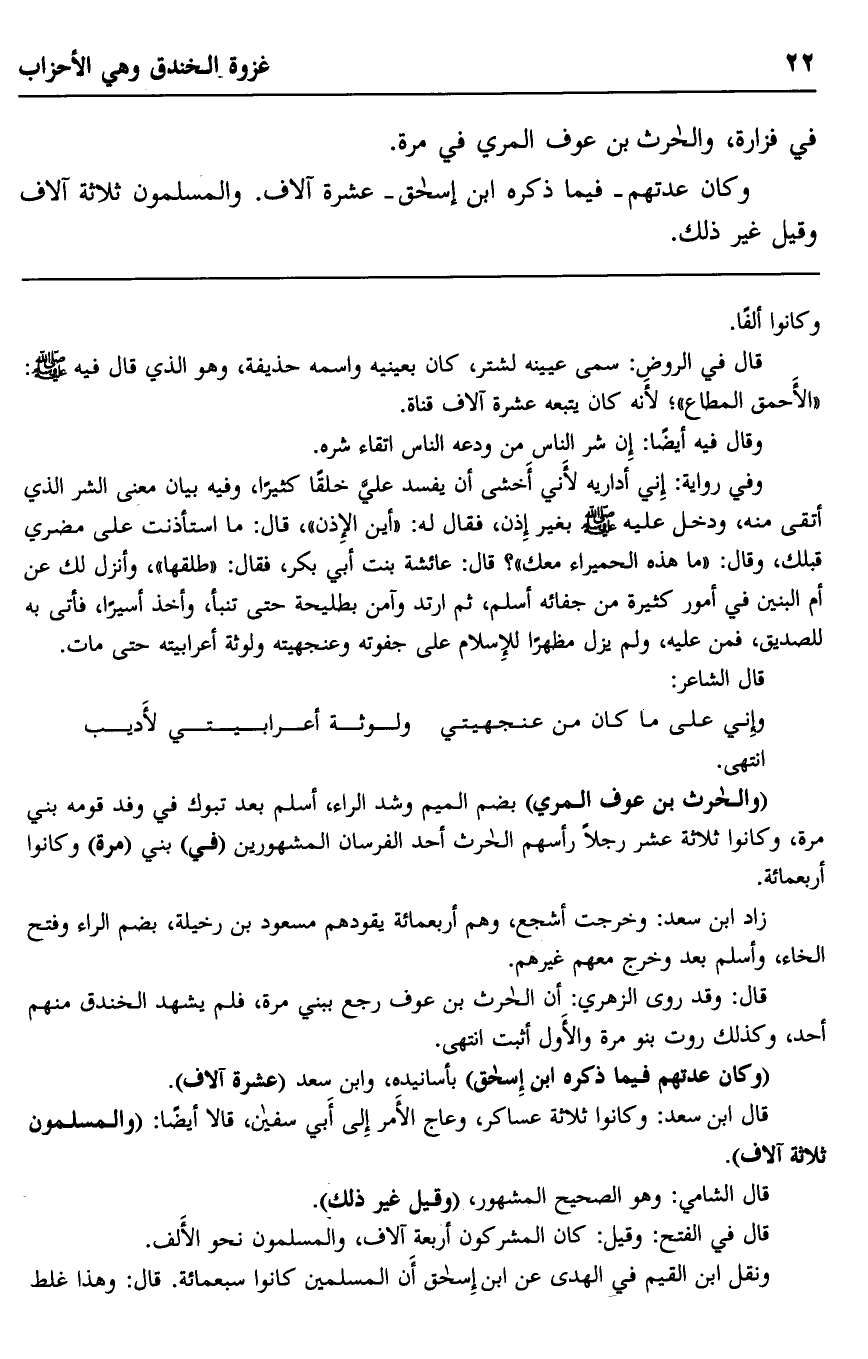 ٢٢ غزوة الخندق وهي الأحزاب
في فزارة، والحٰرث بن عوف المري في مرة.
وكان عدتهم - فيما ذكره ابن إسحٰق - عشرة آلاف. والمسلمون ثلاثة آلاف
وقيل غير ذلك.
وكانوا ألفًا.
قال في الروض: سمى عيينه لشتر، كان بعينيه واسمه حذيفة، وهو الذي قال فيه ﷺ:
«الأَحمق المطاع»؛ لأَنه كان يتبعه عشرة آلاف قناة.
وقال فيه أيضًا: إِن شر الناس من ودعه الناس اتقاء شره.
وفي رواية: إِني أداريه لأَني أَخشى أن يفسد عليَّ خلقًا كثيرًا، وفيه بيان معنى الشر الذي
أتقى منه، ودخل عليه ﷺ بغير إِذن، فقال له: «أين الإِذن»، قال: ما استأذنت على مضري
قبلك، وقال: «ما هذه الحميراء معك»؟ قال: عائشة بنت أبي بكر، فقال: «طلقها»، وأنزل لك عن
أم البنين في أمور كثيرة من جفائه أسلم، ثم ارتد وآمن بطليحة حتى تنبأ، وأخذ أسيرًا، فأتى به
للصديق، فمن عليه، ولم يزل مظهرًا للإِسلام على جفوته وعنجهيته ولوثة أعرابيته حتى مات.
قال الشاعر:
وإِني على ما كان من عنجهيتي ولوثة أعرابيتي لأَديب
انتهى.
(والحٰرث بن عوف المري) بضم الميم وشد الراء، أسلم بعد تبوك في وفد قومه بني
مرة، وكانوا ثلاثة عشر رجلاً رأسهم الحٰرث أحد الفرسان المشهورين (في) بني (مرة) وكانوا
أربعمائة.
زاد ابن سعد: وخرجت أشجع، وهم أربعمائة يقودهم مسعود بن رخيلة، بضم الراء وفتح
الخاء، وأسلم بعد وخرج معهم غيرهم.
قال: وقد روى الزهري: أن الحٰرث بن عوف رجع ببني مرة، فلم يشهد الخندق منهم
أحد، وكذلك روت بنو مرة والأَول أثبت انتهى.
(وكان عدتهم فيما ذكره ابن إِسحٰق) بأسانيده، وابن سعد (عشرة آلاف).
قال ابن سعد: وكانوا ثلاثة عساكر، وعاج الأَمر إِلى أَبي سفيٰن، قالا أيضًا: (والمسلمون
ثلاثة آلاف).
قال الشامي: وهو الصحيح المشهور، (وقيل غير ذلك).
قال في الفتح: وقيل: كان المشركون أربعة آلاف، والمسلمون نحو الأَلف.
ونقل ابن القيم في الهدى عن ابن إِسحٰق أَن المسلمين كانوا سبعمائة. قال: وهذا غلط